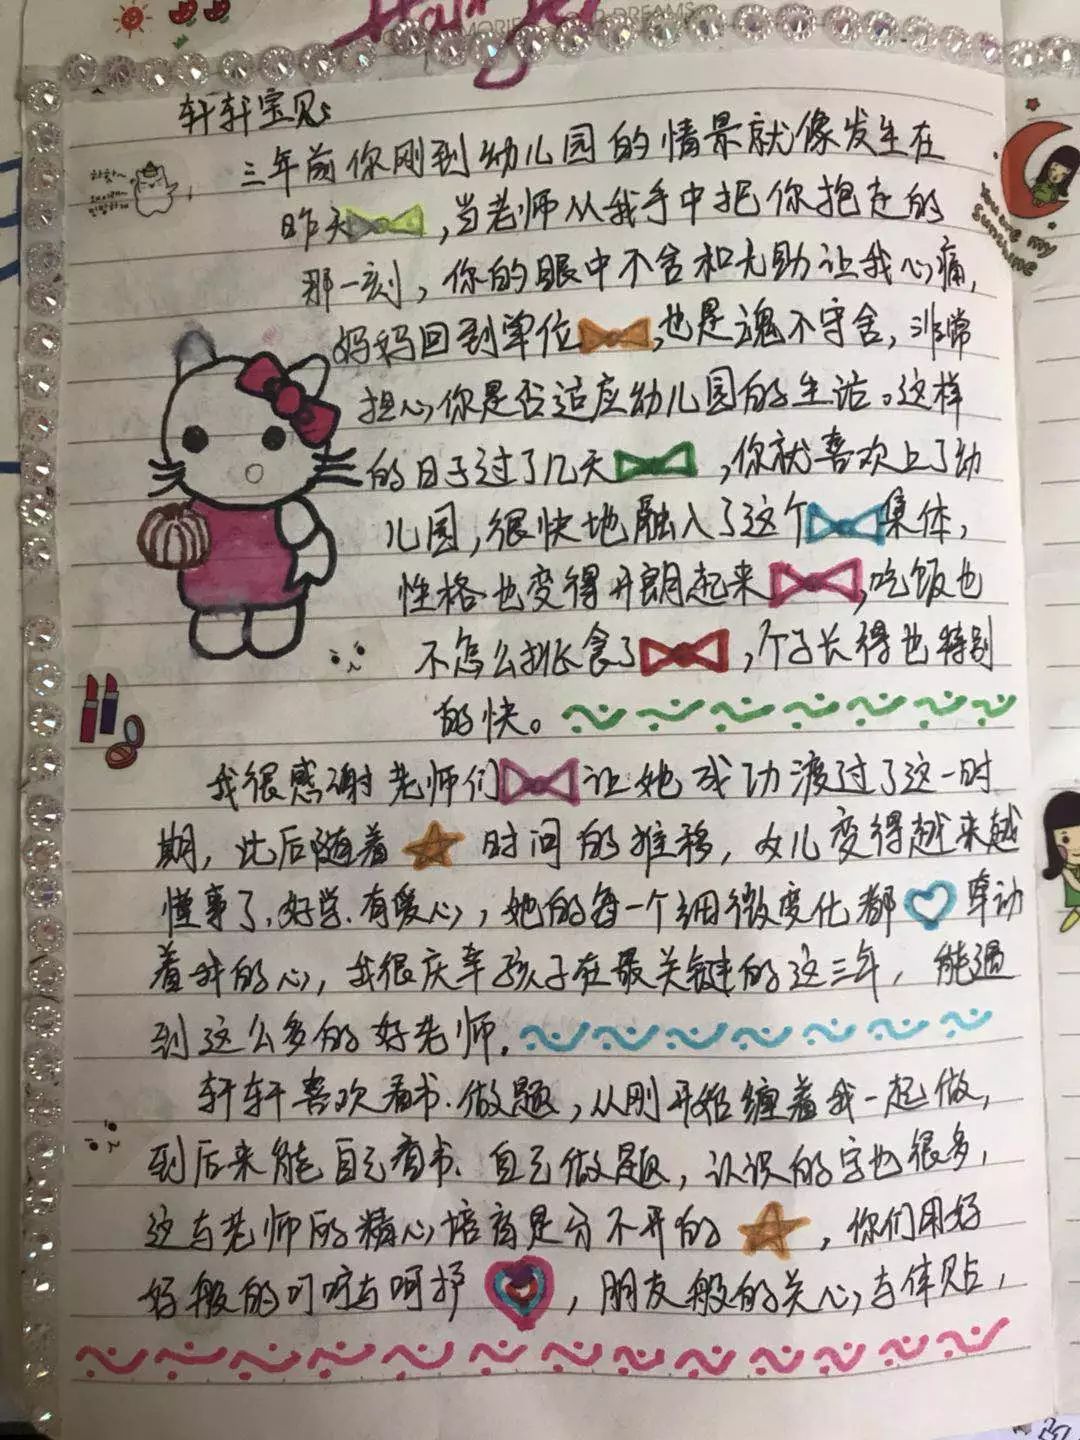 轩轩宝贝:
三年前你刚到幼儿园的情景就像发生在
昨天,当老师从我手中把你抱走的
那一刻,你的眼中不舍和无助让我心痛,
妈妈回到单位,也是魂不守舍,非常
担心你是否适应幼儿园的生活。这样
的日子过了几天,你就喜欢上了幼
儿园,很快地融入了这个集体,
性格也变得开朗起来,吃饭也
不怎么挑食了,个子长得也特别
的快。
我很感谢老师们让她成功渡过了这一时
期,此后随着时间的推移,女儿变得越来越
懂事了、好学、有爱心,她的每一个细微变化都牵动
着我的心,我很庆幸孩子在最关键的这三年,能遇
到这么多的好老师.
轩轩喜欢看书、做题,从刚开始缠着我一起做,
到后来能自己看书、自己做题,认识的字也很多,
这与老师的精心培育是分不开的,你们用好
好般的叮咛与呵护,朋友般的关心与体贴,
You are my
Sunshine